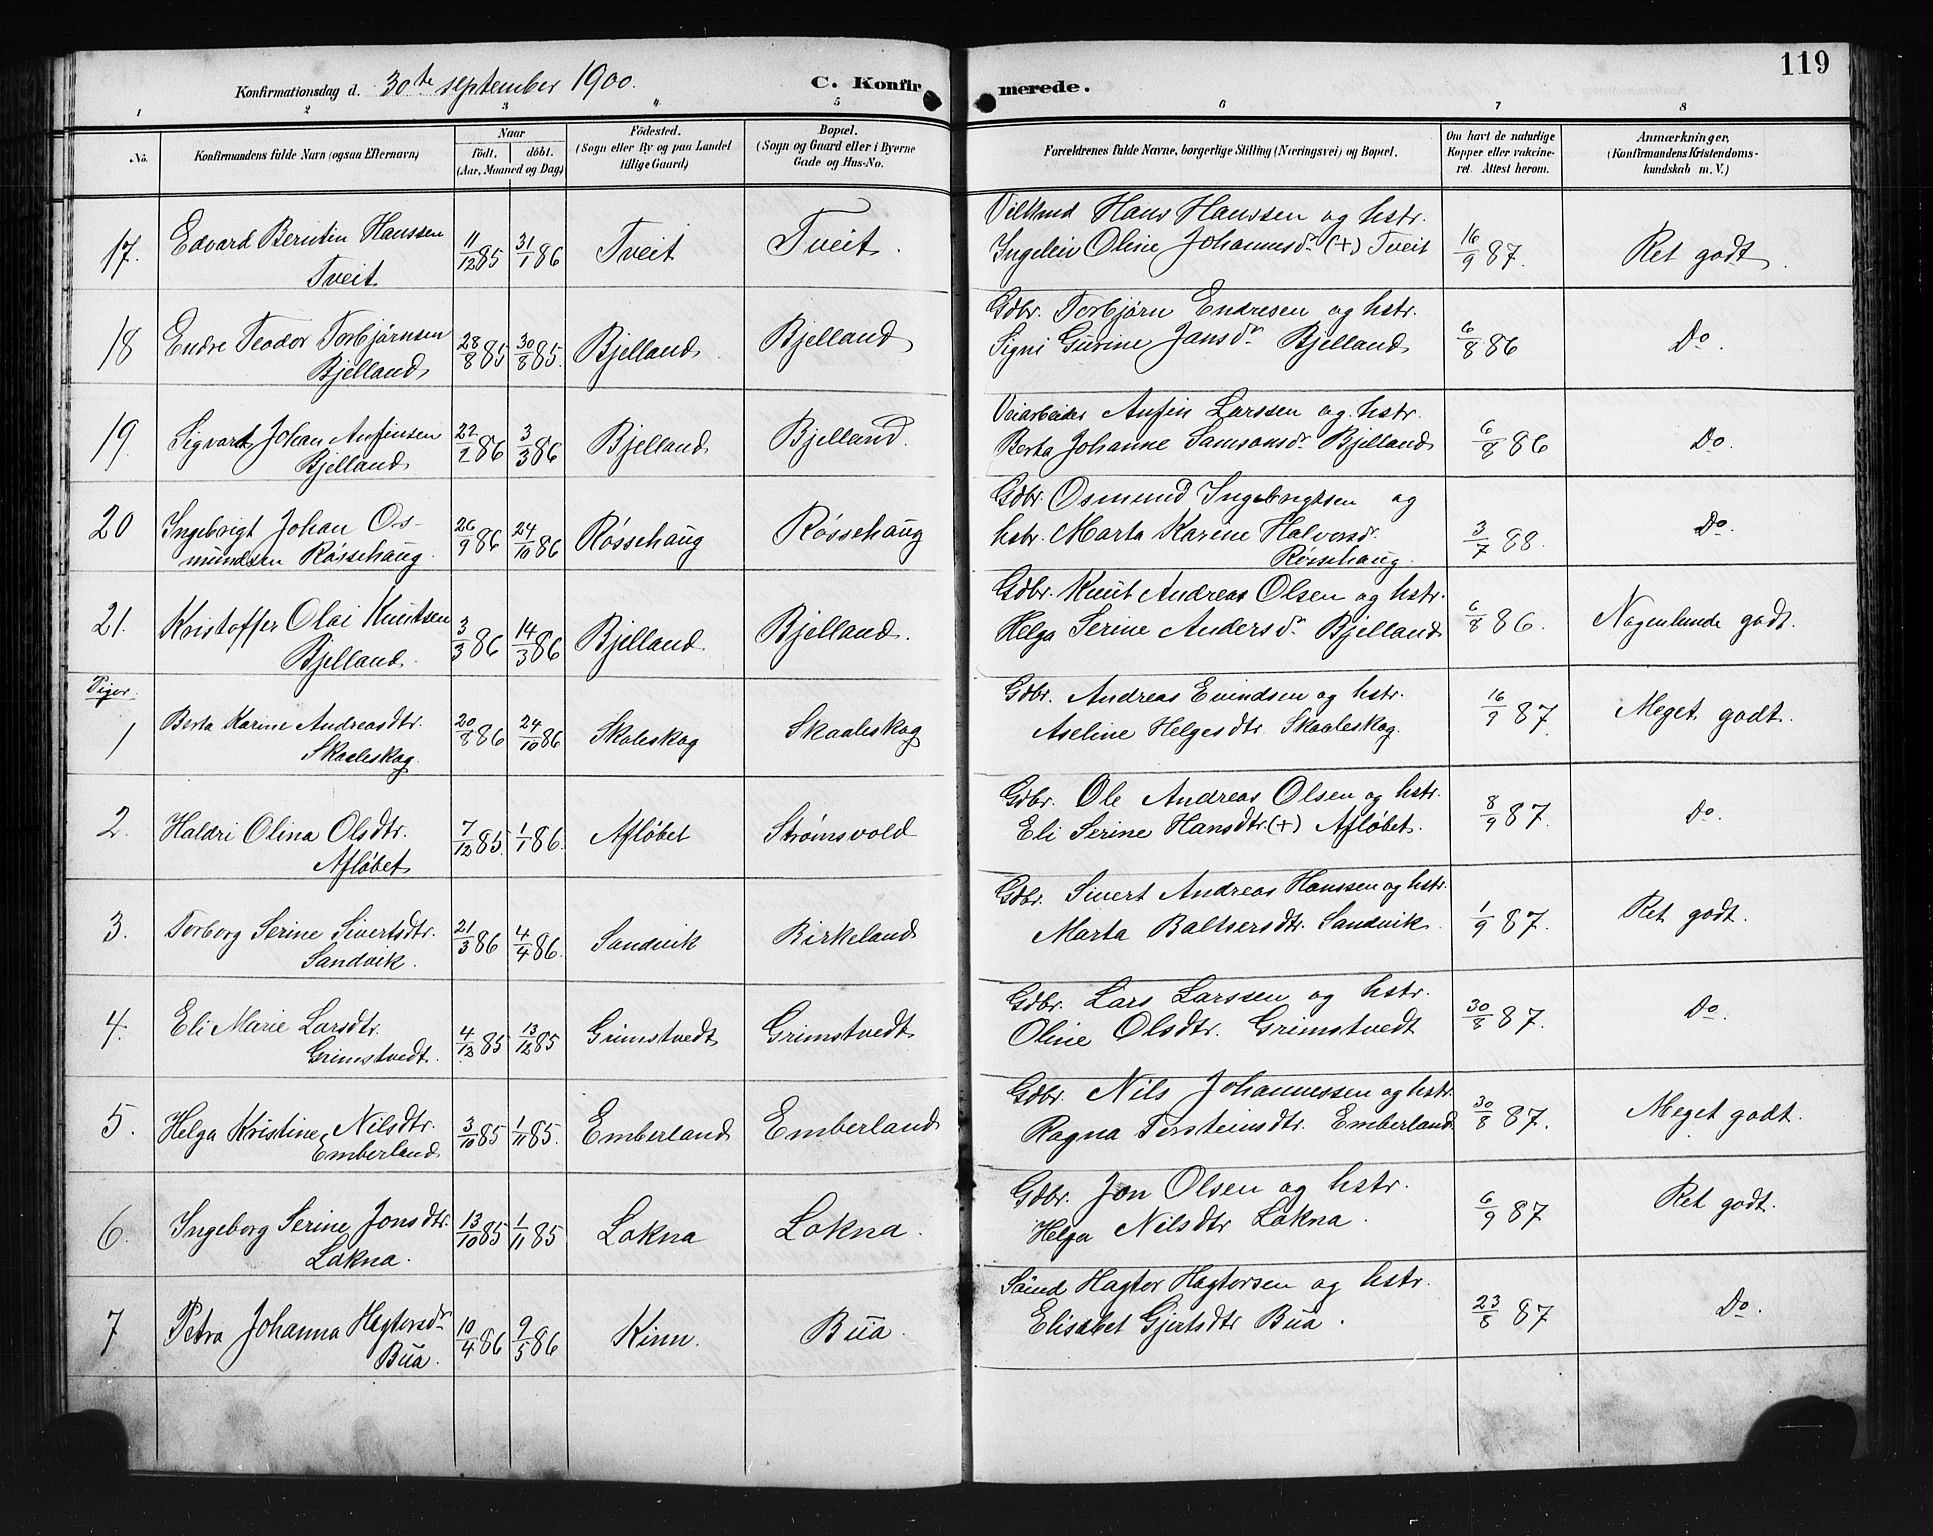 119
Konfirmationsdag d. 30te september 1900. C. Konfirmerede.
1 2 3 4 5 6 7 8
No. Konfirmandens fulde Navn (ogsaa Efternavn) Naar födt. döbt. (Aar, Maaned og Dag) Födested. (Sogn eller By og paa Landet tillige Gaard) Bopæl. (Sogn og Gaard eller i Byerne Gade og Hus-No. Forældrenes fulde Navne, borgerlige Stilling (Næringsvei) og Bopæl. Om havt de naturlige Kopper eller vakcineret. Attest herom. Anmærkninger, (Konfirmandens Kristendomskundskab m. V.)
17. Edvard Berntin Hanssen 11/12 85 31/1 86 Tveit Tveit. Hans Hanssen og hstr. 16/9 87. Ret godt.
Tveit Ingelein Oline Johannesdr. (+) Tveit
18 Endre Teodor Torbjørnsen 28/8 85 30/8 85. Bjelland. Bjelland Gdbr. Torbjørn Endresen og hstr. 6/8 86 Do.
Bjelland Signi Gurine Jansdr. Bjelland
19. Sigvart Johan Anfinsen 22/2 86 3/3 86 Bjelland Bjelland. Veiarbeider Anfin Larssen og hstr. 6/8 86 Do.
Bjelland Berta Johanne Samsonsdr. Bjelland
20 Ingebrigt Johan Os- 26/9 86 24/10 86 Røssehaug Røssehaug Gdbr. Osmund Ingebrigtsen og 3/7 88. Do.
mundsen Røssehaug. hstr. Marta Karine Halvorsdr.
Røssehaug.
21. Kristoffer Olai Knutsen 3/3 86 14/3 86 Bjelland Bjelland. Gdbr. Knut Andreas Olsen og hstr. 6/8 86. Nogenlunde godt.
Bjelland. Helga Serine Andersdr. Bjelland
Piger.
1 Berta Karine Andreasdtr. 20/8 86 24/10 86 Skaleskog Skaaleskog Gdbr. Andreas Evindsen og hstr. 16/9 87. Meget godt.
Skaaleskog. Aseline Helgesdtr. Skaaleskog.
2. Haldri Olina Olsdtr. 7/12 85. 1/1 86. Afløbet Strømsvold Gdbr. Ole Andreas Olsen og hstr. 8/9 87. Do.
Afløbet Eli Serine Hansdtr. (+) Afløbet.
3. Torborg Serine Sivertsdtr. 21/3 86 4/4 86. Sandvik Birkeland Gdbr. Sivert Andreas Hanssen og hstr. 1/9 87. Ret godt.
Sandvik. Marta Baltsersdtr. Sandvik.
4. Eli Marie Larsdtr. 4/12 85 13/12 85 Grimstvedt Grimstvedt Gdbr. Lars Larssen og hstr. 30/8 87. Do.
Grimstvedt. Oline Olsdtr. Grimstvedt
5. Helga Kristine Nilsdtr. 3/10 85 1/11 85. Emberland Emberland Gdbr. Nils Johannessen og hstr. 30/8 87. Meget godt.
Emberland Ragna Torsteinsdtr. Emberland
6. Ingeborg Serine Jonsdtr. 13/10 85 1/11 85 Løkna Løkna. Gdbr. Jon Olsen og hstr. 6/9 87 Ret godt.
Løkna. Helga Nilsdtr Løkna.
7 Petra Johanna Hagtorsdr. 10/4 86 9/5 86 Kinn. Bua. Hagtor Hagtorsen og hstr. 23/8 87 Do.
Bua. Elisabet Gjertsdtr Bua.